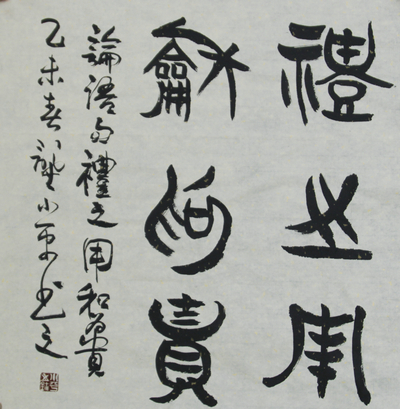 禮之用
龢為貴
論語句禮之用和為貴
乙未春小平书之